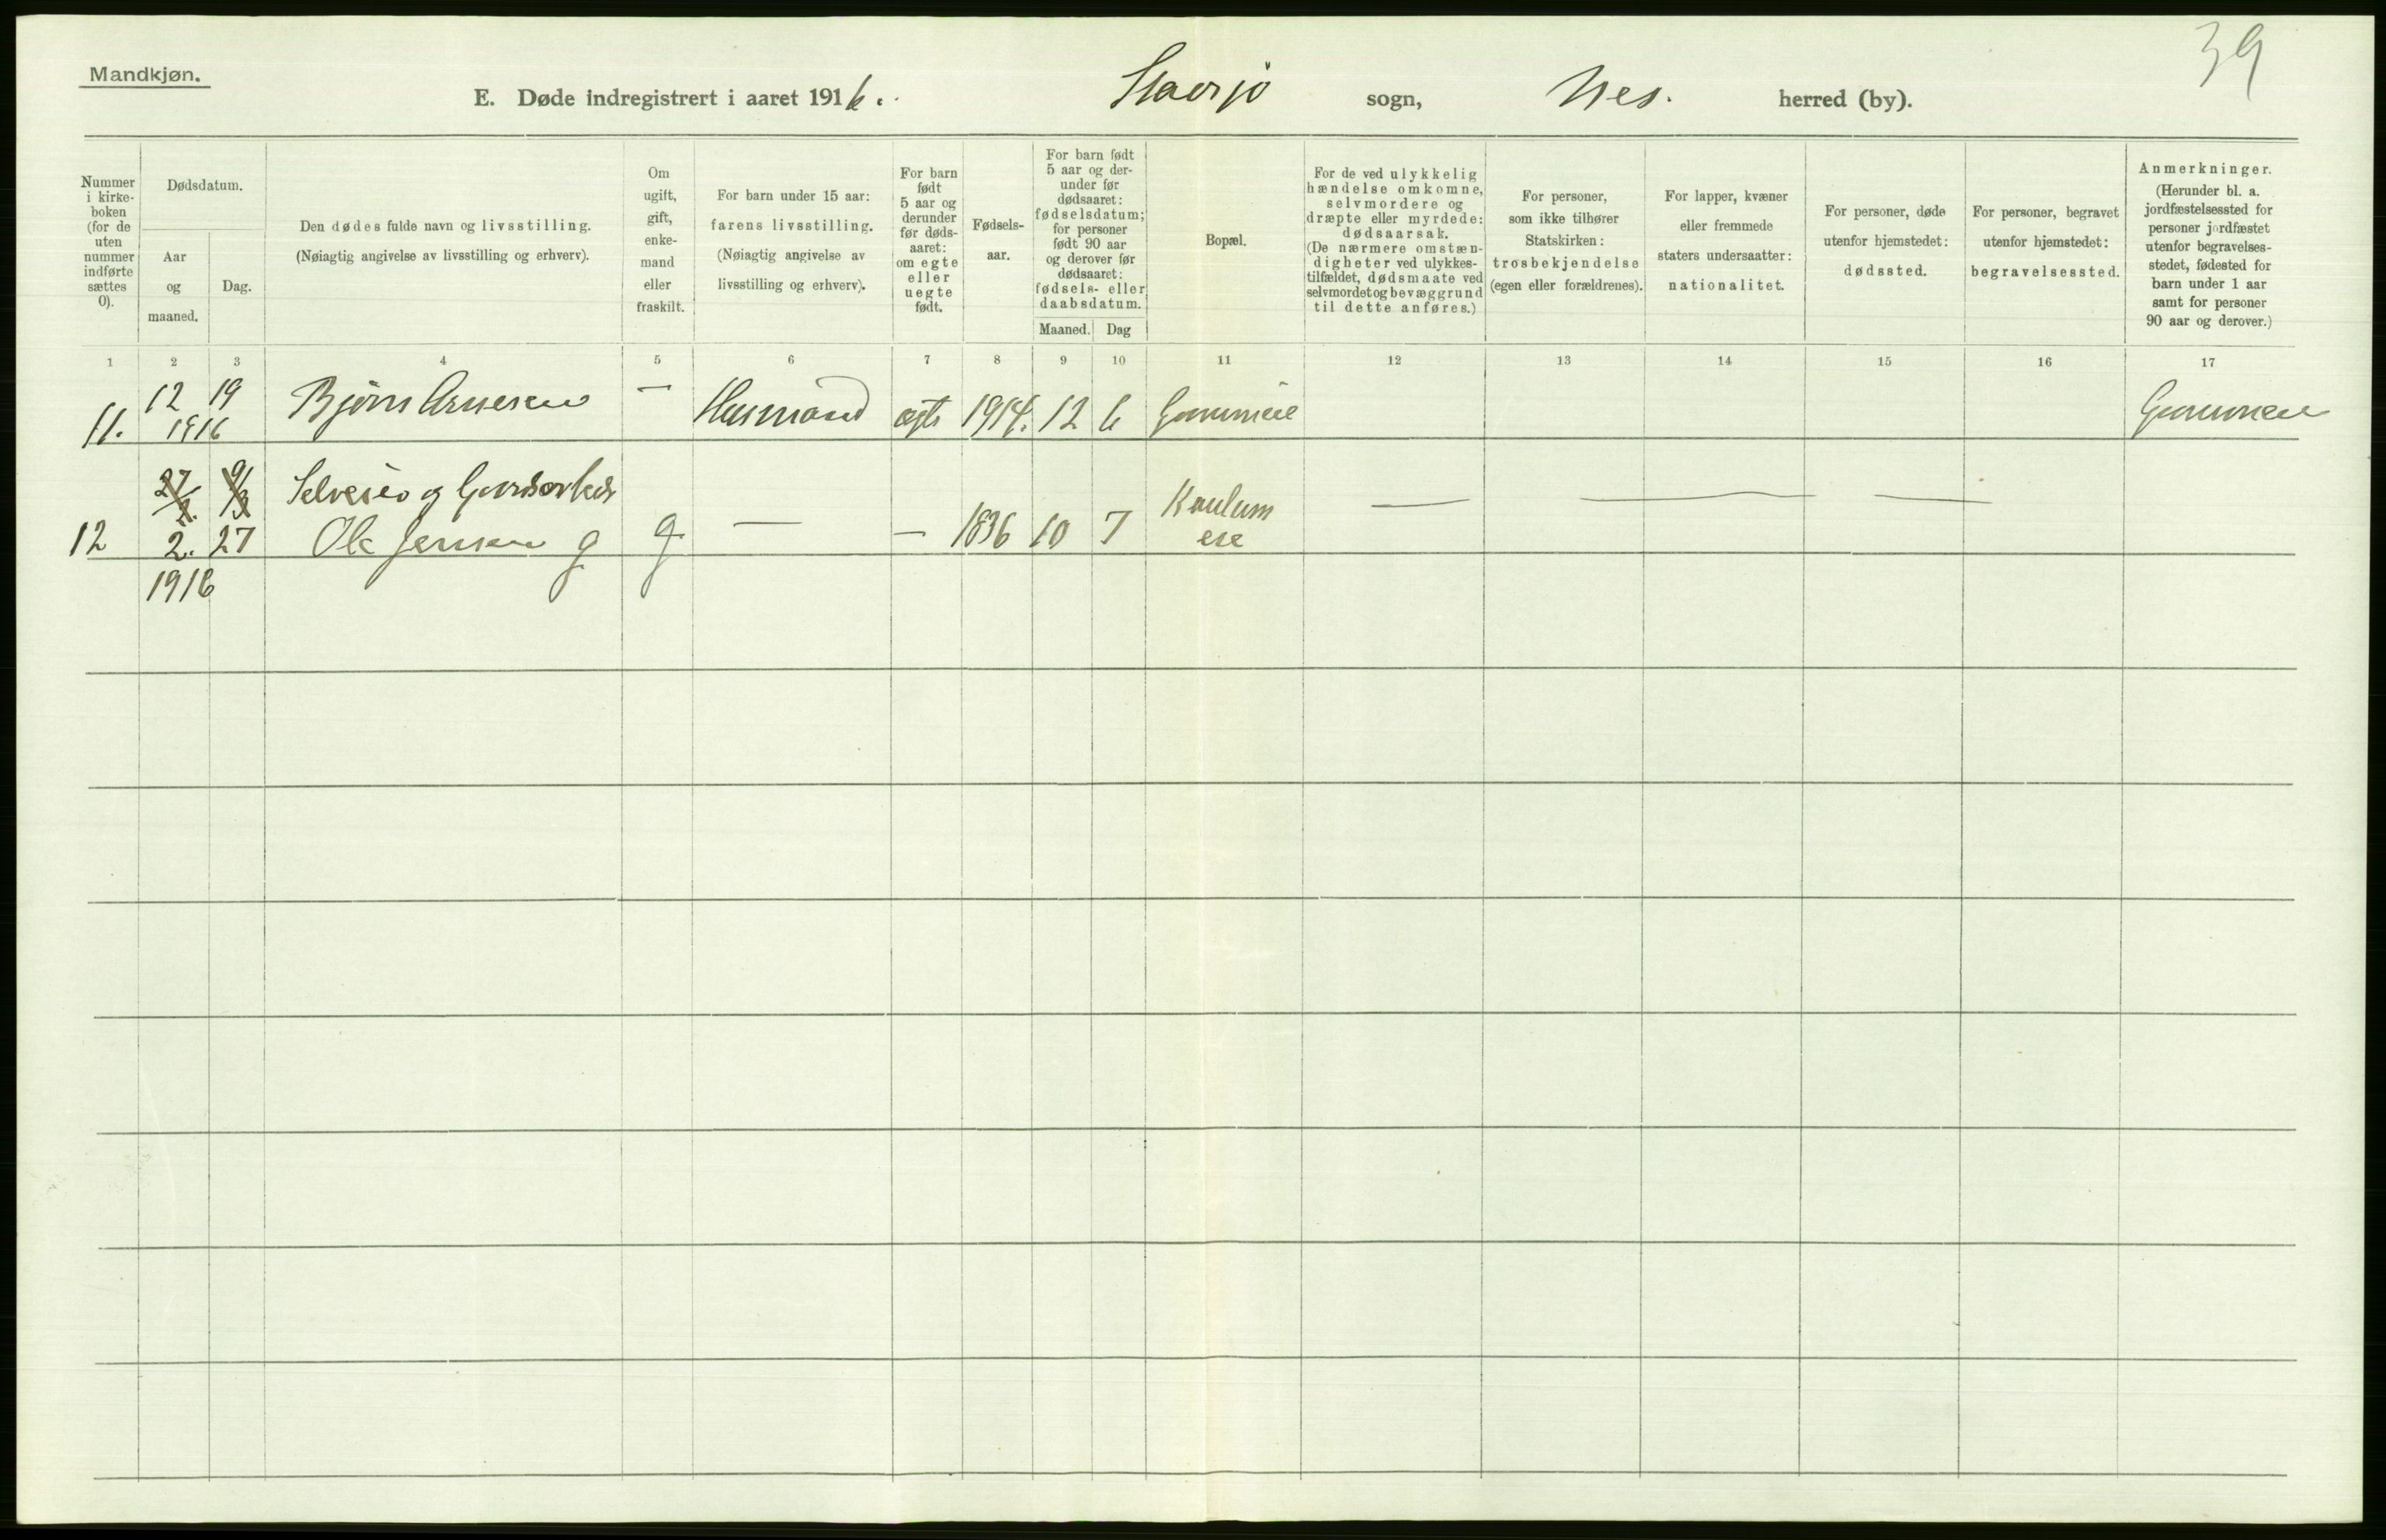 39
Mandkjøn.
E. Døde indregistrert i aaret 1916. Stavsjø sogn, Nes. herred (by).
Nummer
i kirke-
boken
(for de
uten
nummer
indførte
sættes
0).
Dødsdatum.
Aar
og
maaned.
Dag.
Den dødes fulde navn og livsstilling.
(Nøiagtig angivelse av livsstilling og erhverv).
Om
ugift,
gift,
enke-
mand
eller
fraskilt.
For barn under 15 aar:
farens livsstilling.
(Nøiagtig angivelse av
livsstilling og erhverv).
For barn
født
5 aar og
derunder
før døds-
aaret:
om egte
eller
uegte
født.
Fødsels-
aar.
For barn født
5 aar og der-
under før
dødsaaret:
fødselsdatum;
for personer
født 90 aar
og derover før
dødsaaret:
fødsels- eller
daabsdatum.
Maaned. Dag
Bopæl.
For de ved ulykkelig
hændelse omkomne,
selvmordere og
dræpte eller myrdede:
dødsaarsak.
(De nærmere omstæn-
digheter ved ulykkes-
tilfældet, dødsmaate ved
selvmordet og bevæggrund
til dette anføres.)
For personer,
som ikke tilhører
Statskirken:
trosbekjendelse
(egen eller forældrenes).
For lapper, kvæner
eller fremmede
staters undersaatter:
nationalitet.
For personer, døde
utenfor hjemstedet:
dødssted.
For personer, begravet
utenfor hjemstedet:
begravelsessted.
Anmerkninger.
(Herunder bl. a.
jordfæstelsessted for
personer jordfæstet
utenfor begravelses-
stedet, fødested for
barn under 1 aar
samt for personer
90 aar og derover.)
1 2 3 4 5 6 7 8 9 10 11 12 13 14 15 16 17
11. 12 19 Bjørn Arnesen — Husmand egte 1914. 12 6
1916
27/2. 9/3 Selveier og
12 2. 27 Ole Jensen g — — 1836 10 7
1916